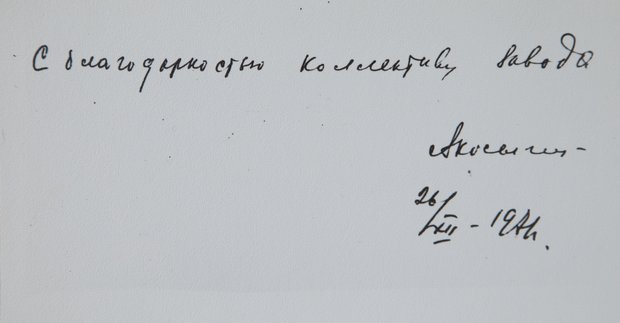 С благодарностью коллективу завода
А Косыгин
26/XII - 197